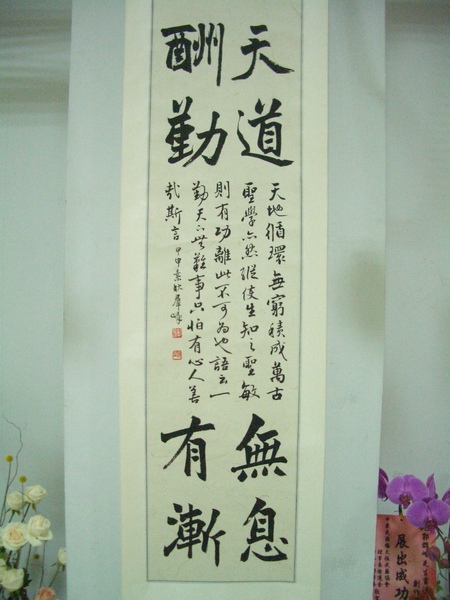 天道
酬勤
天地循環無窮積成萬古
聖學亦然縱使生知之聖敏
則有功離此不可為也語云一
勤天下無難事只怕有心人善
哉斯言甲申
無息
有漸
展出成功